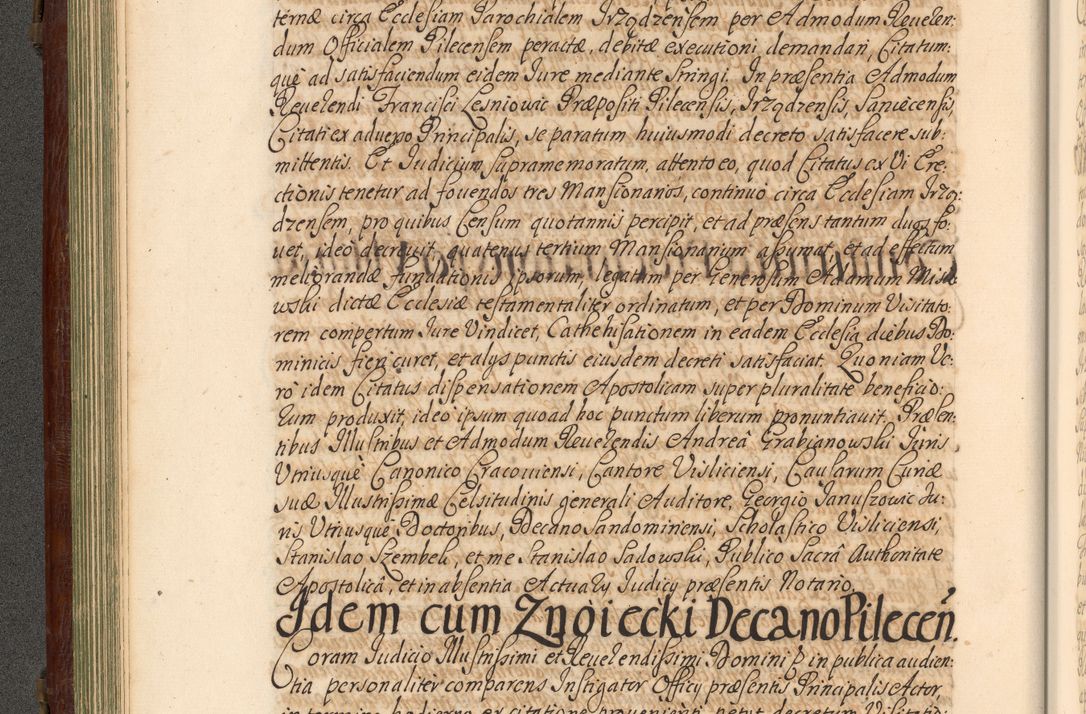 ternæ circa Ecclesiam Parochialem Irządzensem per Admodum Reueren:
dum Officialem Pilecensem peractæ, debitæ executioni demandari, Citatum:
què ad satisfaciendum eidem Iure mediante stringi. In præsentia Admodum
Reuerendi Francisci Lesniowic Præpositi Pilecensis, Irządzensis,
Citati ex aduerso Principalis, se paratum huiusmodi decreto satisfacere sub:
mittentis. Et Iudicium supramemoratum, attento eo, quod Citatus ex Vi Ere:
ctionis tenetur ad fouendos tres Mansionarios, continuò circa Ecclesiam Irzą:
dzensem, pro quibus Censum quotannis percipit, et ad præsens tantum duos fo:
uet, ideò decreuit, quatenus tertium Mansionarium assumat, et ad effectum
meliorandæ fundationis ipsorum, legatum per Generosum Adamum
wski dictæ Ecclesiæ testamentaliter ordinatum, et per Dominum Visitato:
rem compertum Iure Vindicet, Cathehisationem in eadem Ecclesia diebus Do:
minicis fieri curet, et alijs punctis eiusdem decreti satisfaciat. Quoniam Ve:
rò idem Citatus dispensationem Apostolicam super pluralitate beneficio:
rum produxit, ideò ipsum quoad hoc punctum liberum pronuntiauit, Præsen:
tibus Illustribus et Admodum Reuerendis Andreâ Grabianowski Iuris
Vtriusquè Canonico Cracouiensi, Cantore Visliciensi, Causarum Curiæ
suæ Illustrissimæ Celsitudinis generali Auditore, Georgio Ianuszowic Iu:
ris Vtriusquè Doctoribus, Decano Sandomiriensi, Scholastico Visliciensi,
Stanislao Szembek, et me Stanislao Sadowski, Publico Sacrâ Authoritate
Apostolicâ, et in absentia Actuarij Iudicij præsentis Notario.
Idem cum Znoiecki Decano Pilecen̄.
Coram Iudicio Illustrissimi et Reuerendissimi Domini in publica audien:
tia personaliter comparens Instigator Officij præsentis Principalis Actor,
in termino hodierno ex citatione proueniente petijt decretum Visitatio: